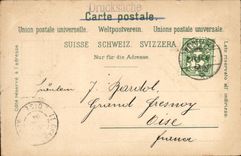 Drucksache
Carte postale.
Union postale universelle. Weltpostverein. Unione postale universale.
SUISSE SCHWEIZ. SVIZZERA
Nur für die Adresse.
Côté réservé à l'adresse
Lato riservato all'indirizzo
Fräulein J. Bardol
Grand Fresnoy
Oise
France